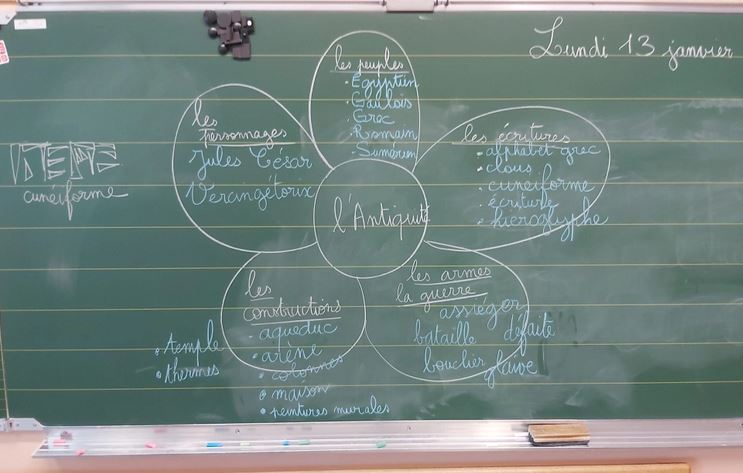 Lundi 13 janvier
cunéiforme
l'Antiquité
les peuples
• Égyptien
• Gaulois
• Grec
• Romain
• Sumérien
les écritures
• alphabet grec
• clous
• cunéiforme
• écriture
• hiéroglyphe
les armes
la guerre
assiéger
bataille défaite
bouclier glaive
les
constructions
• aqueduc
• arène
• colonnes
• maison
• peintures murales
• temple
• thermes
les
personnages
Jules César
Vercingétorix